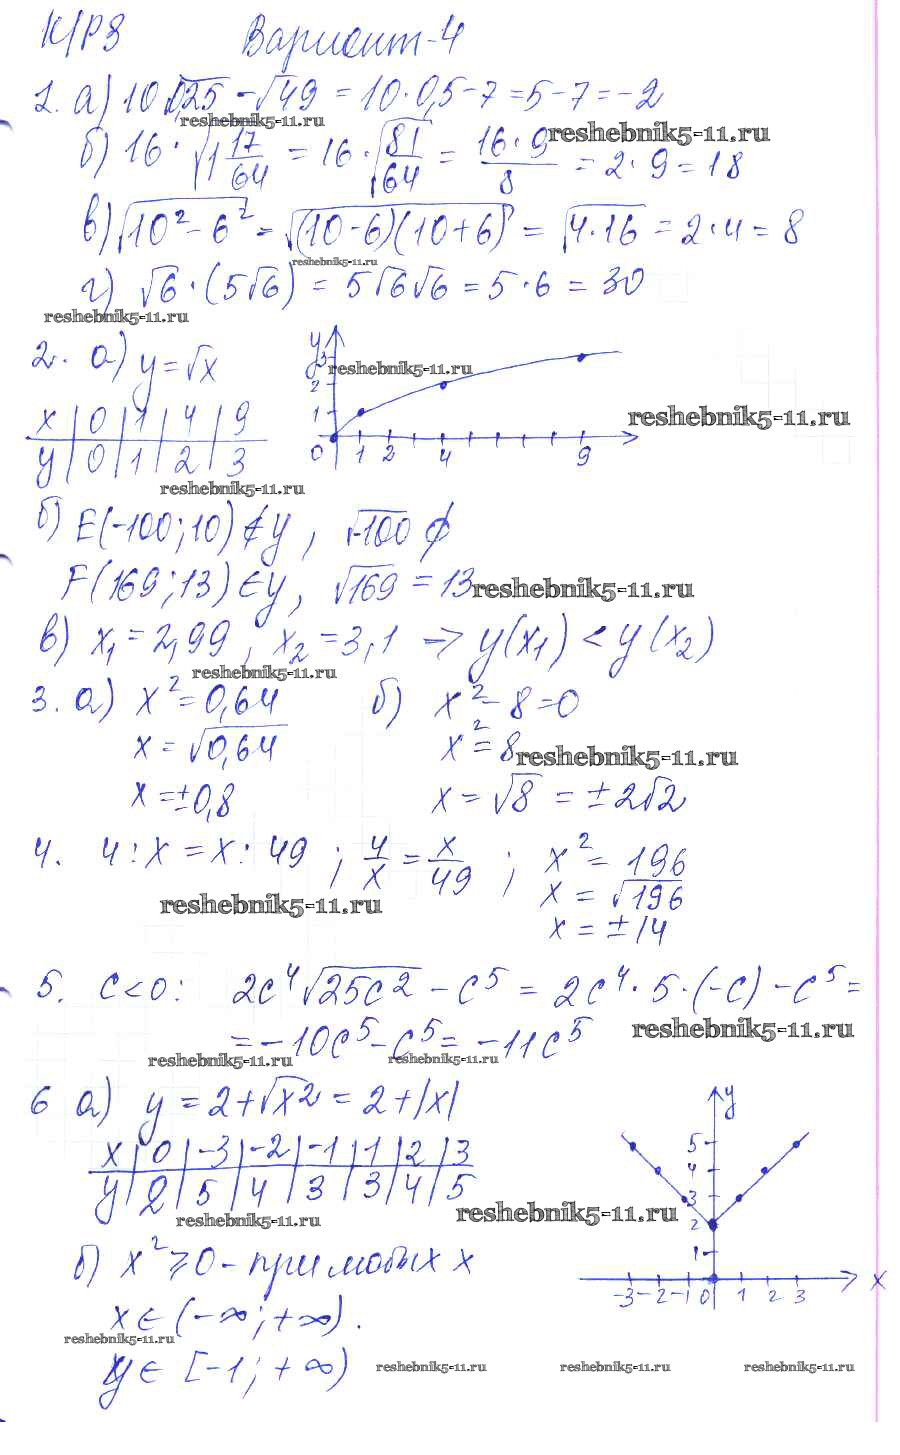 К/Р3 Вариант-4
1. а) 10√0,25 - √49 = 10·0,5-7=5-7=-2
reshebnik5-11.ru
reshebnik5-11.ru
б) 16·√1 17/64 = 16·√81/64 = 16·9/8 = 2·9=18
в) √10²-6² = √(10-6)(10+6) = √4·16 = 2·4=8
reshebnik5-11.ru
г) √6·(5√6) = 5√6√6 = 5·6 = 30
reshebnik5-11.ru
2. а) y=√x
x | 0 | 1 | 4 | 9
y | 0 | 1 | 2 | 3
y 3 2 1 0 1 2 4 9
reshebnik5-11.ru
reshebnik5-11.ru
reshebnik5-11.ru
б) E(-100;10)∉y, √-100 ∅
F(169;13)∈y, √169 = 13
reshebnik5-11.ru
в) x₁=2,99, x₂=3,1 → y(x₁)<y(x₂)
reshebnik5-11.ru
3. а) x²=0,64 б) x²-8=0
x=√0,64 x²=8
reshebnik5-11.ru
x=±0,8 x=√8=±2√2
4. 4:x=x:49 ; 4/x=x/49 ; x²=196
x=√196
reshebnik5-11.ru
x=±14
5. c<0: 2c⁴√25c² - c⁵ = 2c⁴·5·(-c)-c⁵=
=-10c⁵-c⁵=-11c⁵
reshebnik5-11.ru
reshebnik5-11.ru
reshebnik5-11.ru
6 а) y=2+√x²=2+|x|
x | 0 | -3 | -2 | -1 | 1 | 2 | 3
y | 2 | 5 | 4 | 3 | 3 | 4 | 5
y 5 4 3 2 1 -3 -2 -1 0 1 2 3 x
reshebnik5-11.ru
reshebnik5-11.ru
б) x²⩾0 - при любых x
x∈(-∞;+∞).
reshebnik5-11.ru
y∈[-1;+∞)
reshebnik5-11.ru
reshebnik5-11.ru
reshebnik5-11.ru